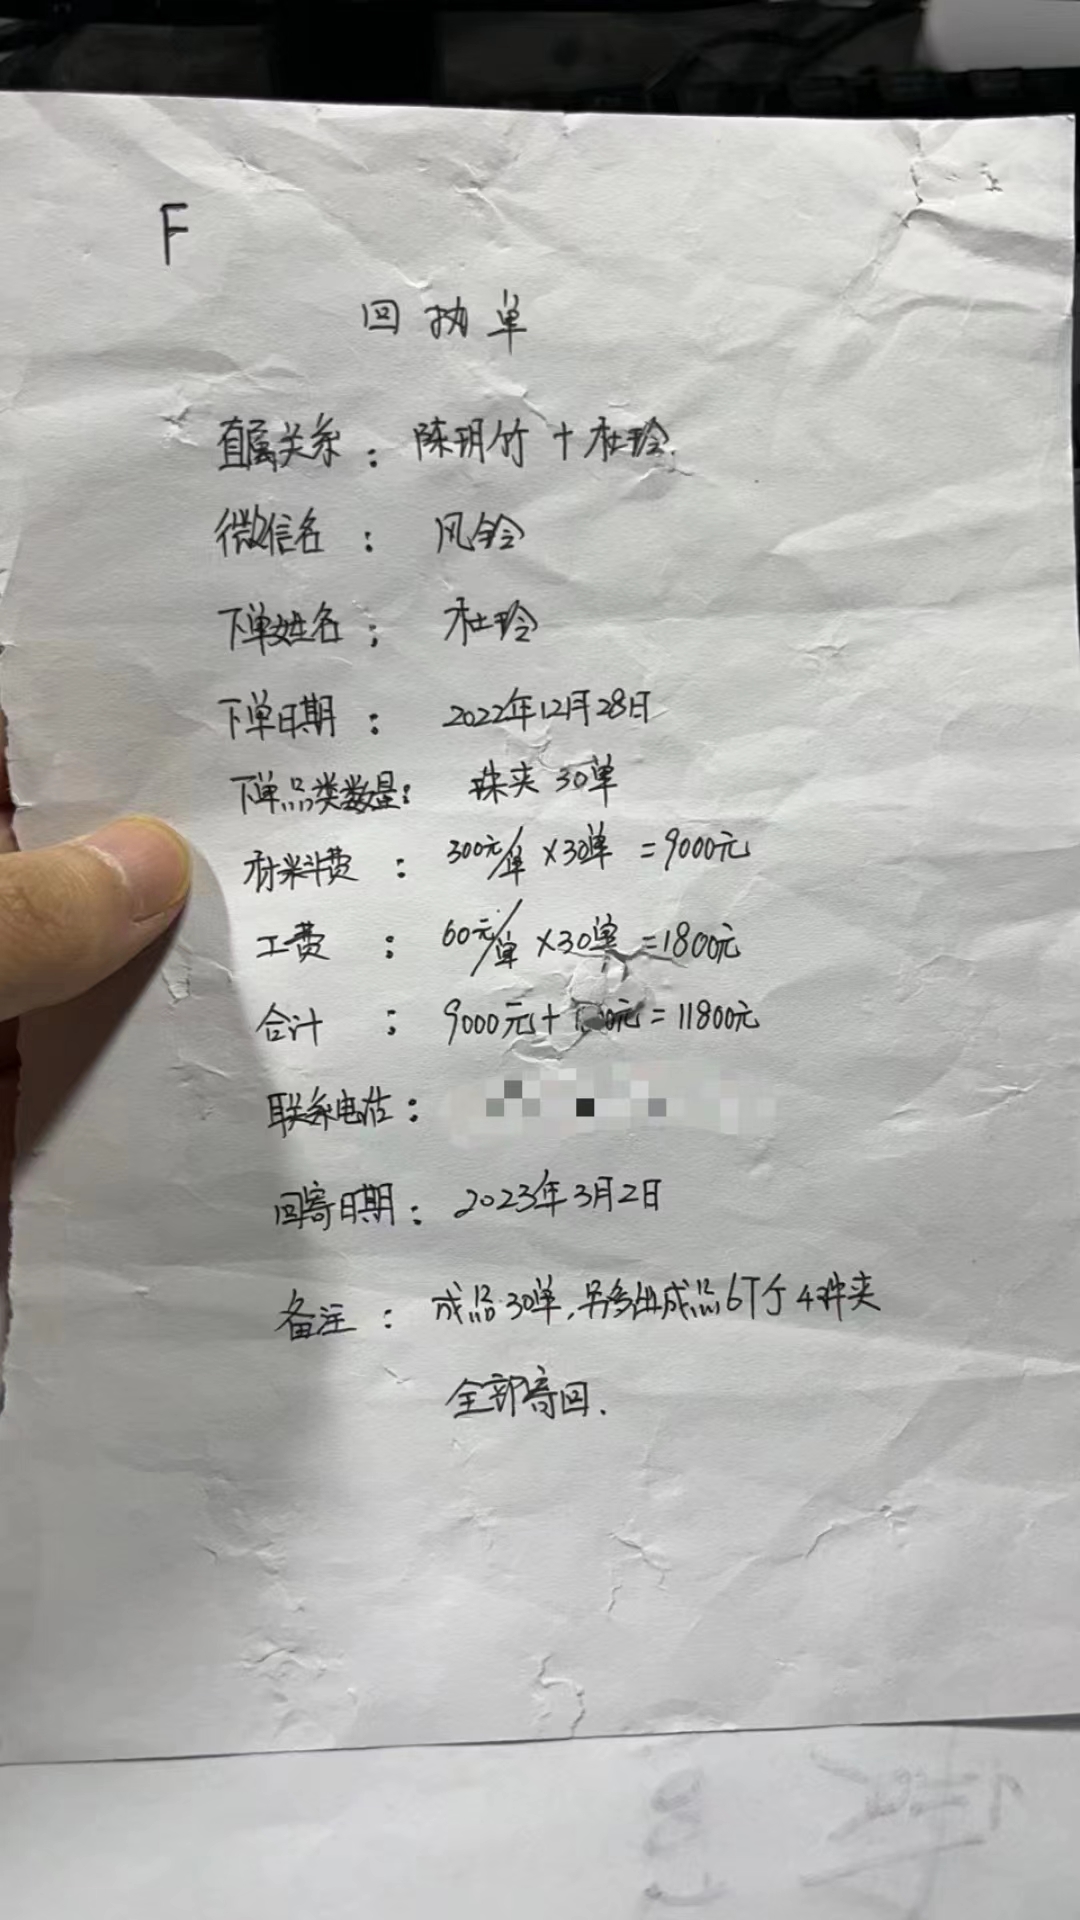 F
回执单
直属关系：陈玥竹＋杜玲
微信名：风铃
下单姓名：杜玲
下单日期：2022年12月28日
下单品类数量：珠夹 30单
材料费：300元/单×30单=9000元
工费：60元/单×30单=1800元
合计：9000元+ 元=11800元
联系电话：
回寄日期：2023年3月2日
备注：成品30单,另多出成品6个 4珠夹
全部寄回.